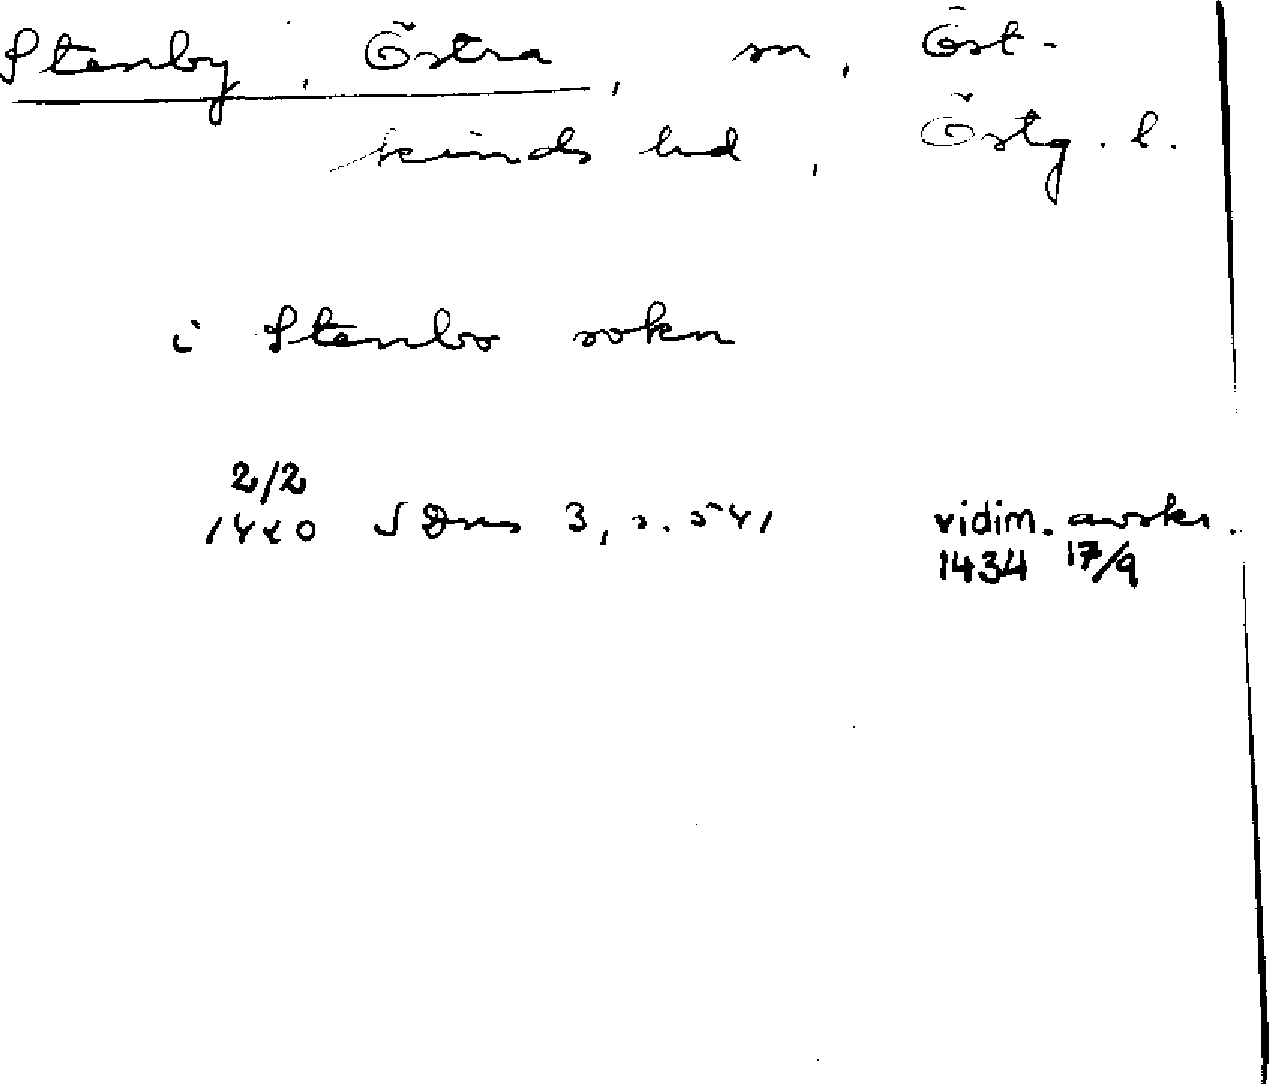 Stenby, Östra, sn, Öst-
kinds hd, Östg. l.
i Stenbo sokn
2/2
1420 SDns 3, s. 541 vidim. avskr.
1434 17/9